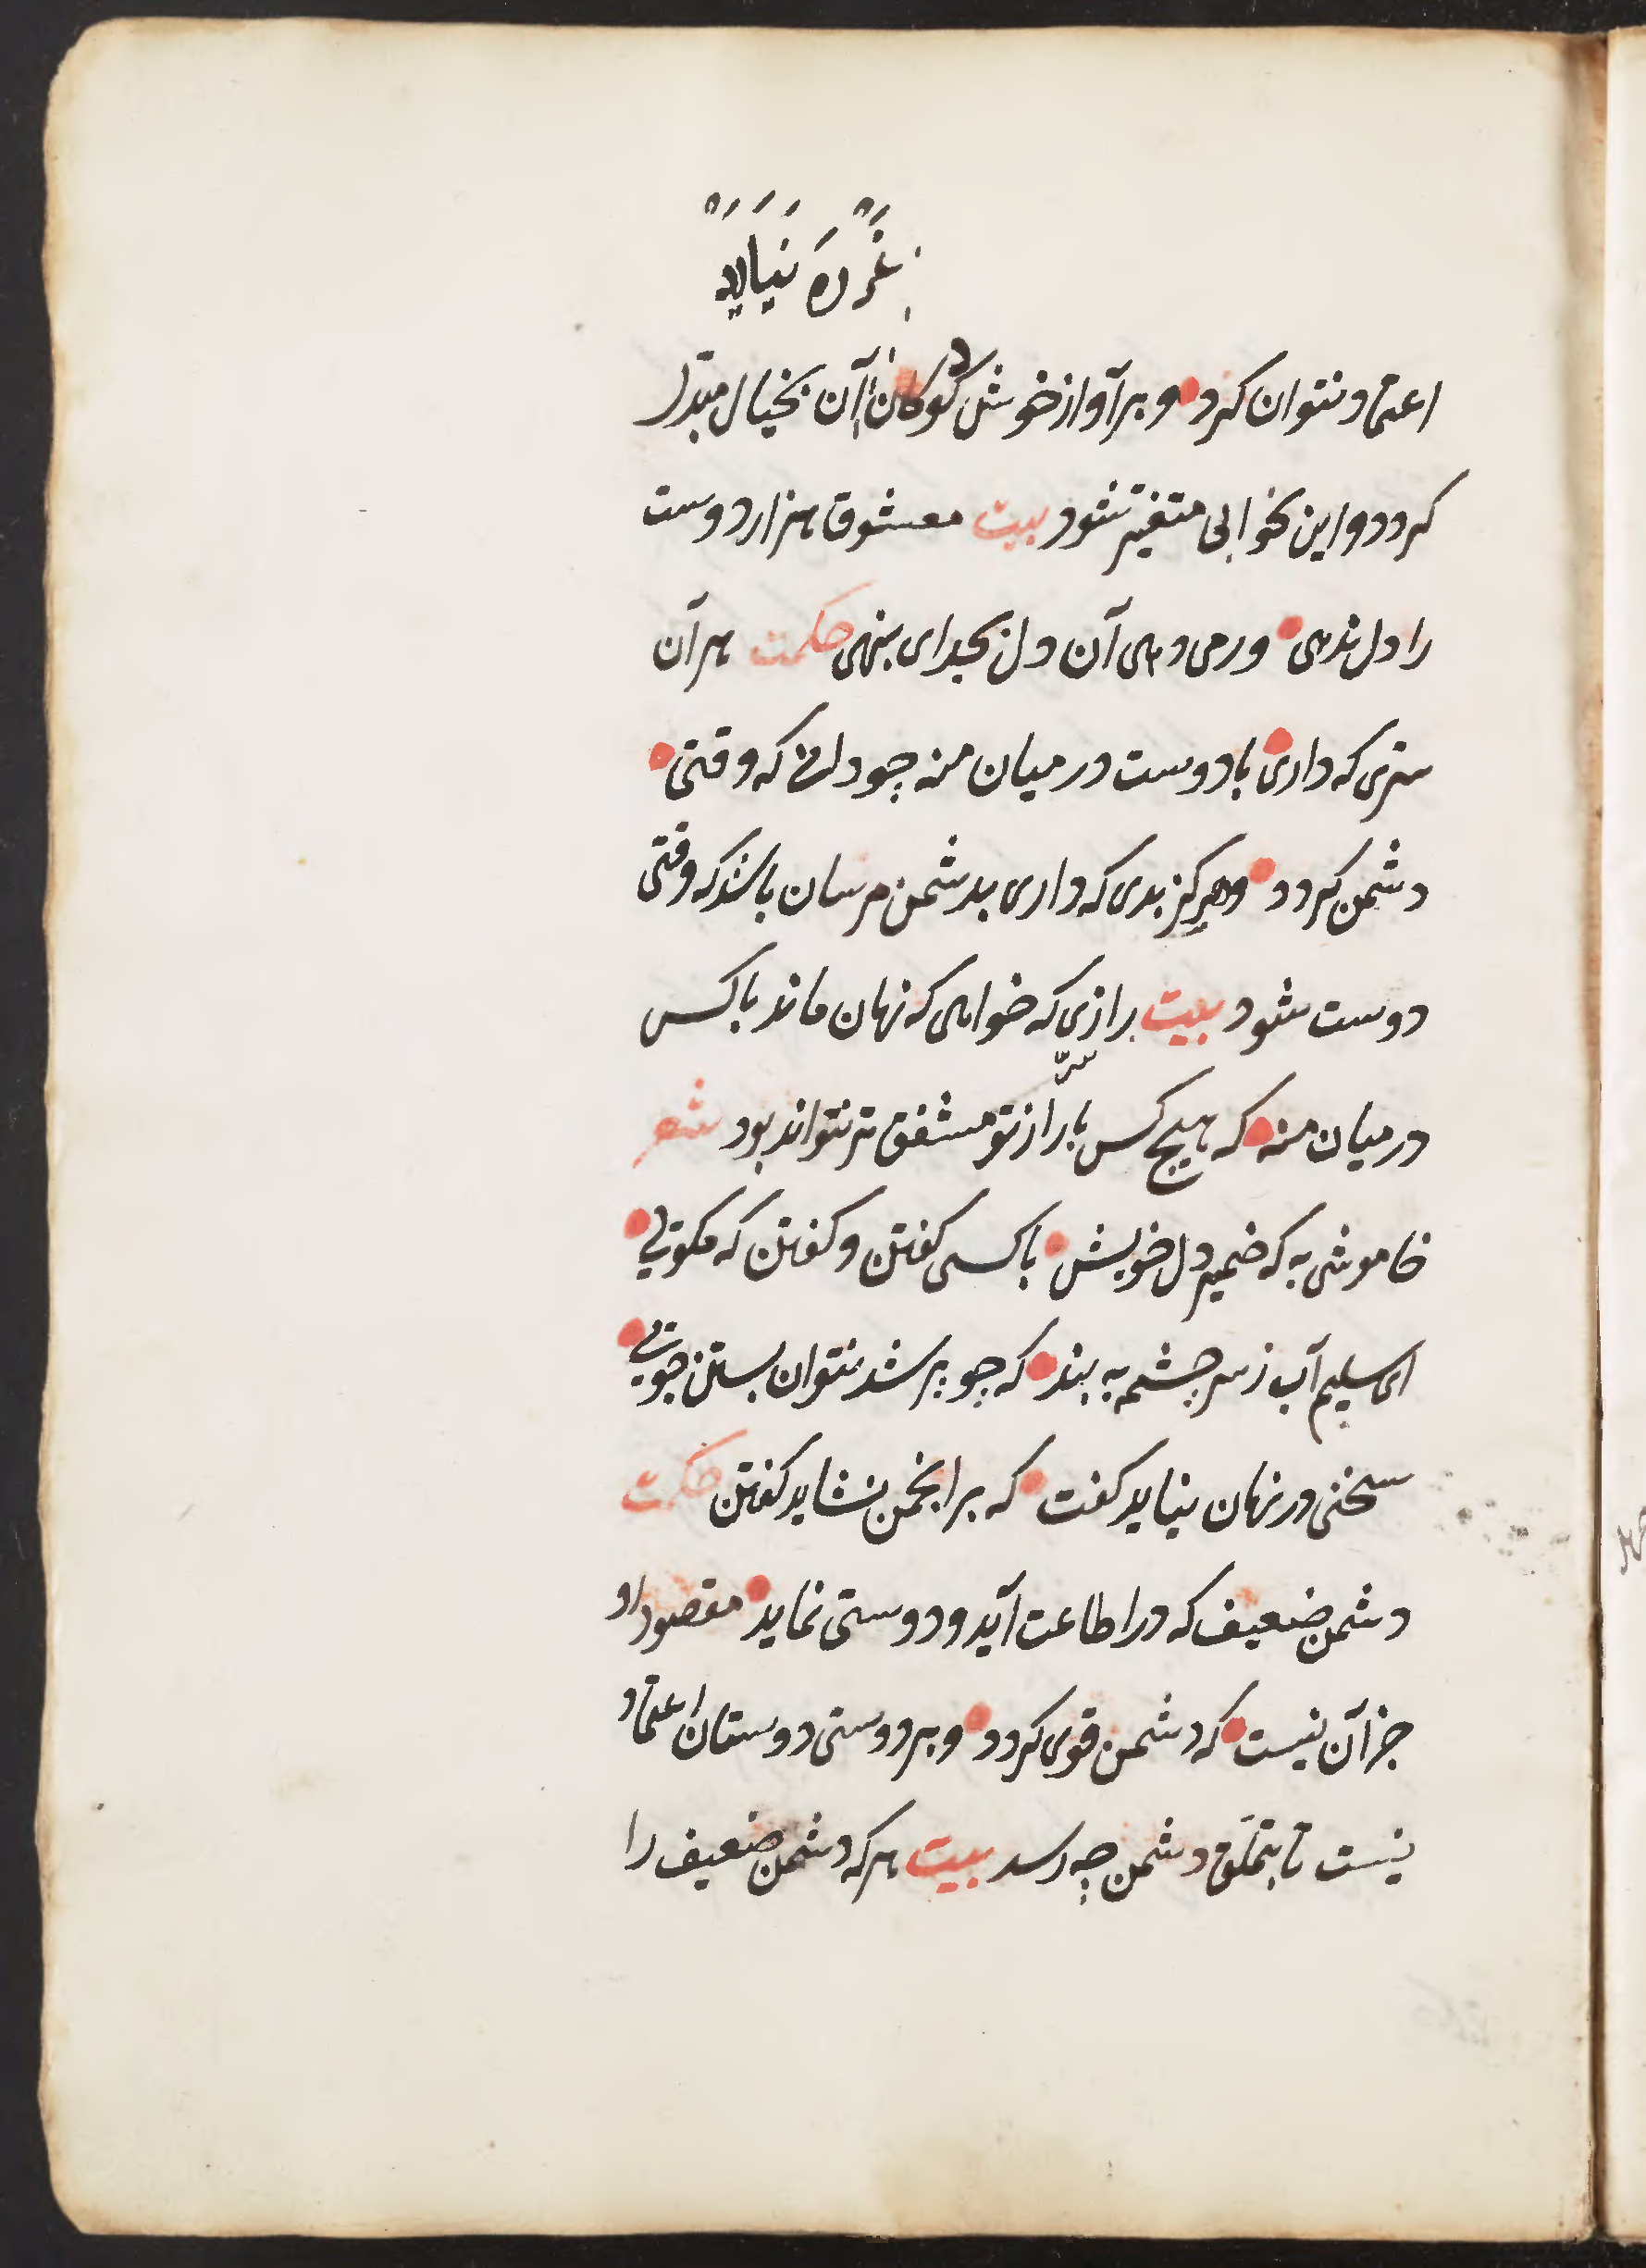 غره نیاید
اعتماد نتوان کرد و بر آواز خوش کودکان آن بخیال مبدل
کردد و این بخوابی متغیر شود بیت معشوق هزار دوست
را دل ندهی ورمی دهی آن دل بجدای بنهی حکمت هر آن
سری که داری با دوست در میان منه چو دانی که وقتی
دشمن کردد وهرکز بدی که داری بدشمن مرسان باشد که وقتی
دوست شود بیت رازی که خواهی که نهان ماند با کس
در میان منه که هیچ کس بار از تو مشفق تر نتواند بود شعر
سر
خاموشی به که ضمیر دل خویش با کسی کفتن و کفتن که مکوی
ای سلیم آب ز سر چشمه به بند که چو پر شد نتوان بستن جوی
سخنی در نهان نباید کفت که بر انجمن نشاید کفتن حکمت
دشمن ضعیف که در اطاعت آید و دوستی نماید مقصود او
جز آن نیست که دشمن قوی کردد و بر دوستی دوستان اعتماد
نیست تا بتملق دشمن چه رسد بیت هر که دشمن ضعیف را